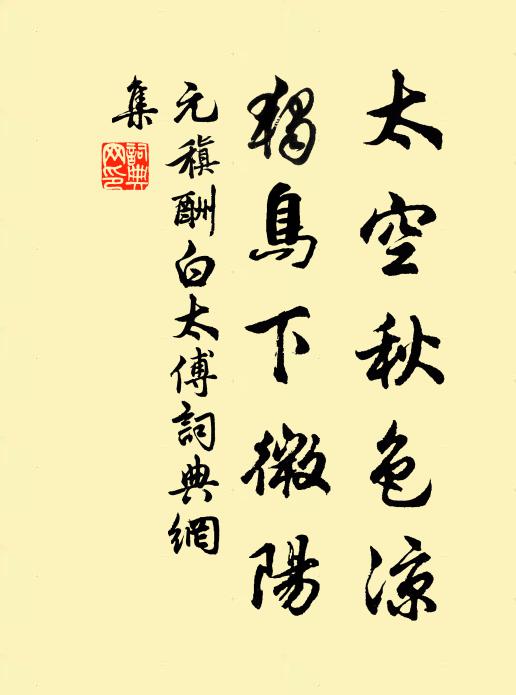 太空秋色凉
獨鳥下微陽
元稹酬白太傅詞典網
集
詞典網印